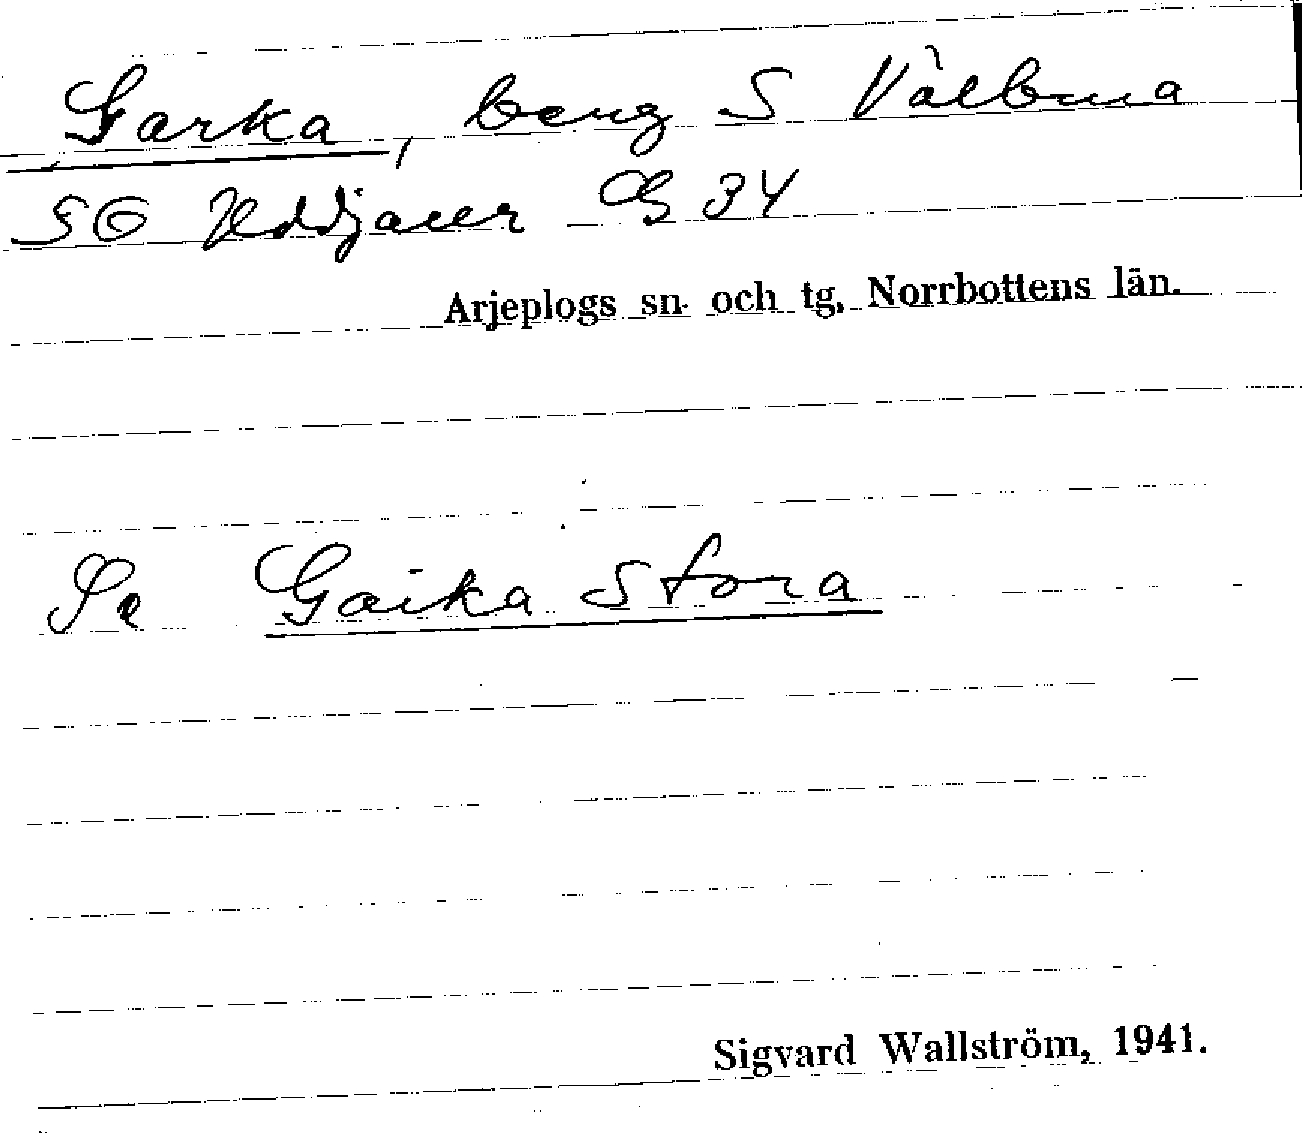 Garka, berg S Välbma
SO Uddjaur CB 34
Arjeplogs sn och tg, Norrbottens län.
Se Gaika Stora
Sigvard Wallström, 1941.